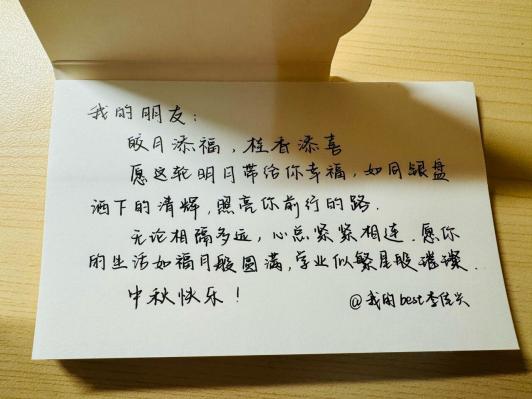 我的朋友：
皎月添福，桂香添喜
愿这轮明月带给你幸福，如同银盘
洒下的清辉，照亮你前行的路．
无论相隔多远，心总紧紧相连．愿你
的生活如福月般圆满，学业似繁星般璀璨．
中秋快乐！
@我的best李佳兴